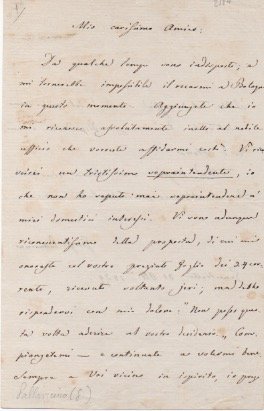 Mio carissimo Amico:
Da qualche tempo sono indisposto, e
mi tornerebbe impossibile il recarmi a Bologna
in questo momento. Aggiungete che io
mi riconosco assolutamente inetto al nobile
ufficio che vorreste affidarmi costì. Vi riu
scirei un tristissimo soprintendente, io
che non ho saputo mai sopraintendere a'
miei domestici interessi. Vi sono adunque
riconoscentissimo della proposta, di cui mi
onoraste col vostro pregiato foglio dei 24 cor
rente, ricevuto soltanto jeri; ma debbo
rispondervi con mio dolore: "Non posso ques
ta volta aderire al vostro desiderio." Com
piangetemi — e continuate a volermi bene.
Sempre a Voi vicino in ispirito, io